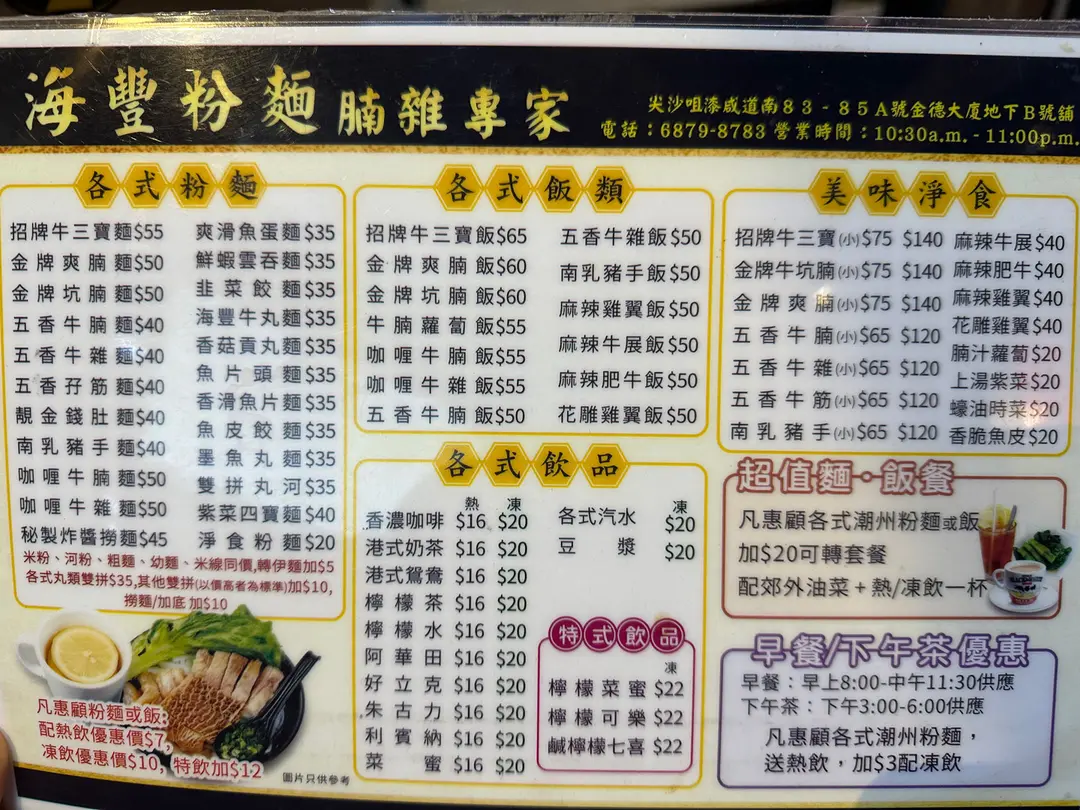 海豐粉麵腩雜專家
尖沙咀漆咸道南83-85A號金德大廈地下B號舖
電話:6879-8783 營業時間:10:30a.m.-11:00p.m.
各式粉麵
招牌牛三寶麵$55
金牌爽腩麵$50
金牌坑腩麵$50
五香牛腩麵$40
五香牛雜麵$40
五香孖筋麵$40
靚金錢肚麵$40
南乳豬手麵$40
咖喱牛腩麵$50
咖喱牛雜麵$50
秘製炸醬撈麵$45
爽滑魚蛋麵$35
鮮蝦雲吞麵$35
韭菜餃麵$35
海豐牛丸麵$35
香菇貢丸麵$35
魚片頭麵$35
香滑魚片麵$35
魚皮餃麵$35
墨魚丸麵$35
雙拼丸河$35
紫菜四寶麵$40
淨食粉麵$20
米粉、河粉、粗麵、幼麵、米線同價,轉伊麵加$5
各式丸類雙拼$35,其他雙拼(以價高者為標準)加$10,
撈麵/加底加$10
凡惠顧粉麵或飯:
配熱飲優惠價$7,
凍飲優惠價$10, 特飲加$12
圖片只供參考
各式飯類
招牌牛三寶飯$65
金牌爽腩飯$60
金牌坑腩飯$60
牛腩蘿蔔飯$55
咖喱牛腩飯$55
咖喱牛雜飯$55
五香牛腩飯$50
五香牛雜飯$50
南乳豬手飯$50
麻辣雞翼飯$50
麻辣牛展飯$50
麻辣肥牛飯$50
花雕雞翼飯$50
各式飲品
熱 凍
香濃咖啡 $16 $20
港式奶茶 $16 $20
港式鴛鴦 $16 $20
檸檬茶 $16 $20
檸檬水 $16 $20
阿華田 $16 $20
好立克 $16 $20
朱古力 $16 $20
利賓納 $16 $20
菜蜜 $16 $20
凍
各式汽水 $20
豆漿 $20
特式飲品
凍
檸檬菜蜜 $22
檸檬可樂 $22
鹹檸檬七喜 $22
美味淨食
招牌牛三寶(小)$75 $140
金牌牛坑腩(小)$75 $140
金牌爽腩(小)$75 $140
五香牛腩(小)$65 $120
五香牛雜(小)$65 $120
五香牛筋(小)$65 $120
南乳豬手(小)$65 $120
麻辣牛展$40
麻辣肥牛$40
麻辣雞翼$40
花雕雞翼$40
腩汁蘿蔔$20
上湯紫菜$20
蠔油時菜$20
香脆魚皮$20
超值麵·飯餐
凡惠顧各式潮州粉麵或飯
加$20可轉套餐
配郊外油菜+熱/凍飲一杯
早餐/下午茶優惠
早餐:早上8:00-中午11:30供應
下午茶:下午3:00-6:00供應
凡惠顧各式潮州粉麵,
送熱飲,加$3配凍飲